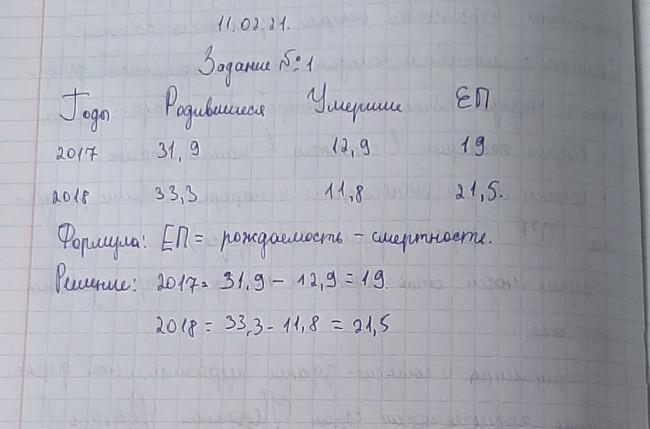 11.02.21.
Задание №1
Годы Родившиеся Умершие ЕП
2017 31,9 12,9 19
2018 33,3 11,8 21,5.
Формула: ЕП = рождаемость - смертность.
Решение: 2017 = 31,9 - 12,9 = 19.
2018 = 33,3 - 11,8 = 21,5